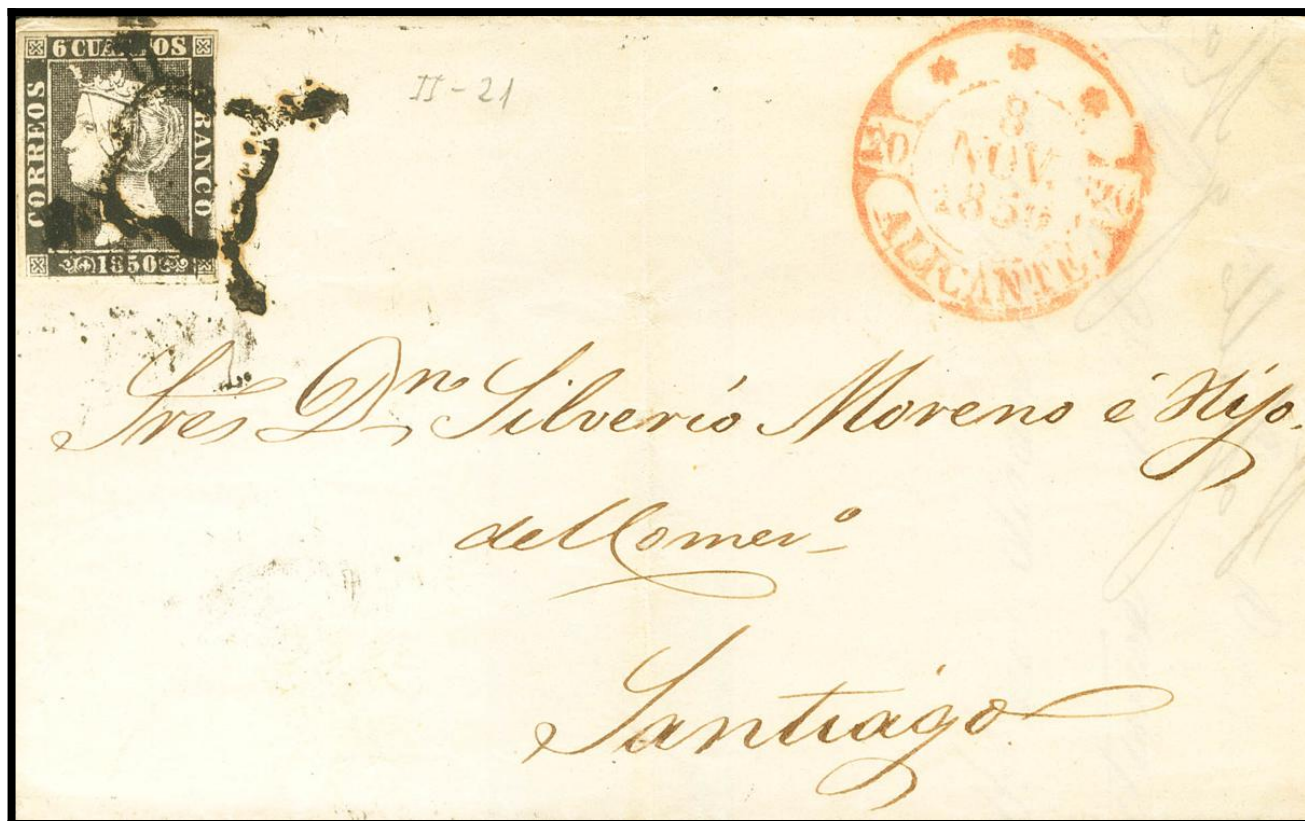 6 CUARTOS
CORREOS
FRANCO
1850
II-21
8
NOV.
1850
20
20
ALICANTE
Sres Dn Silverio Moreno é Hijo.
del Comerº
Santiago